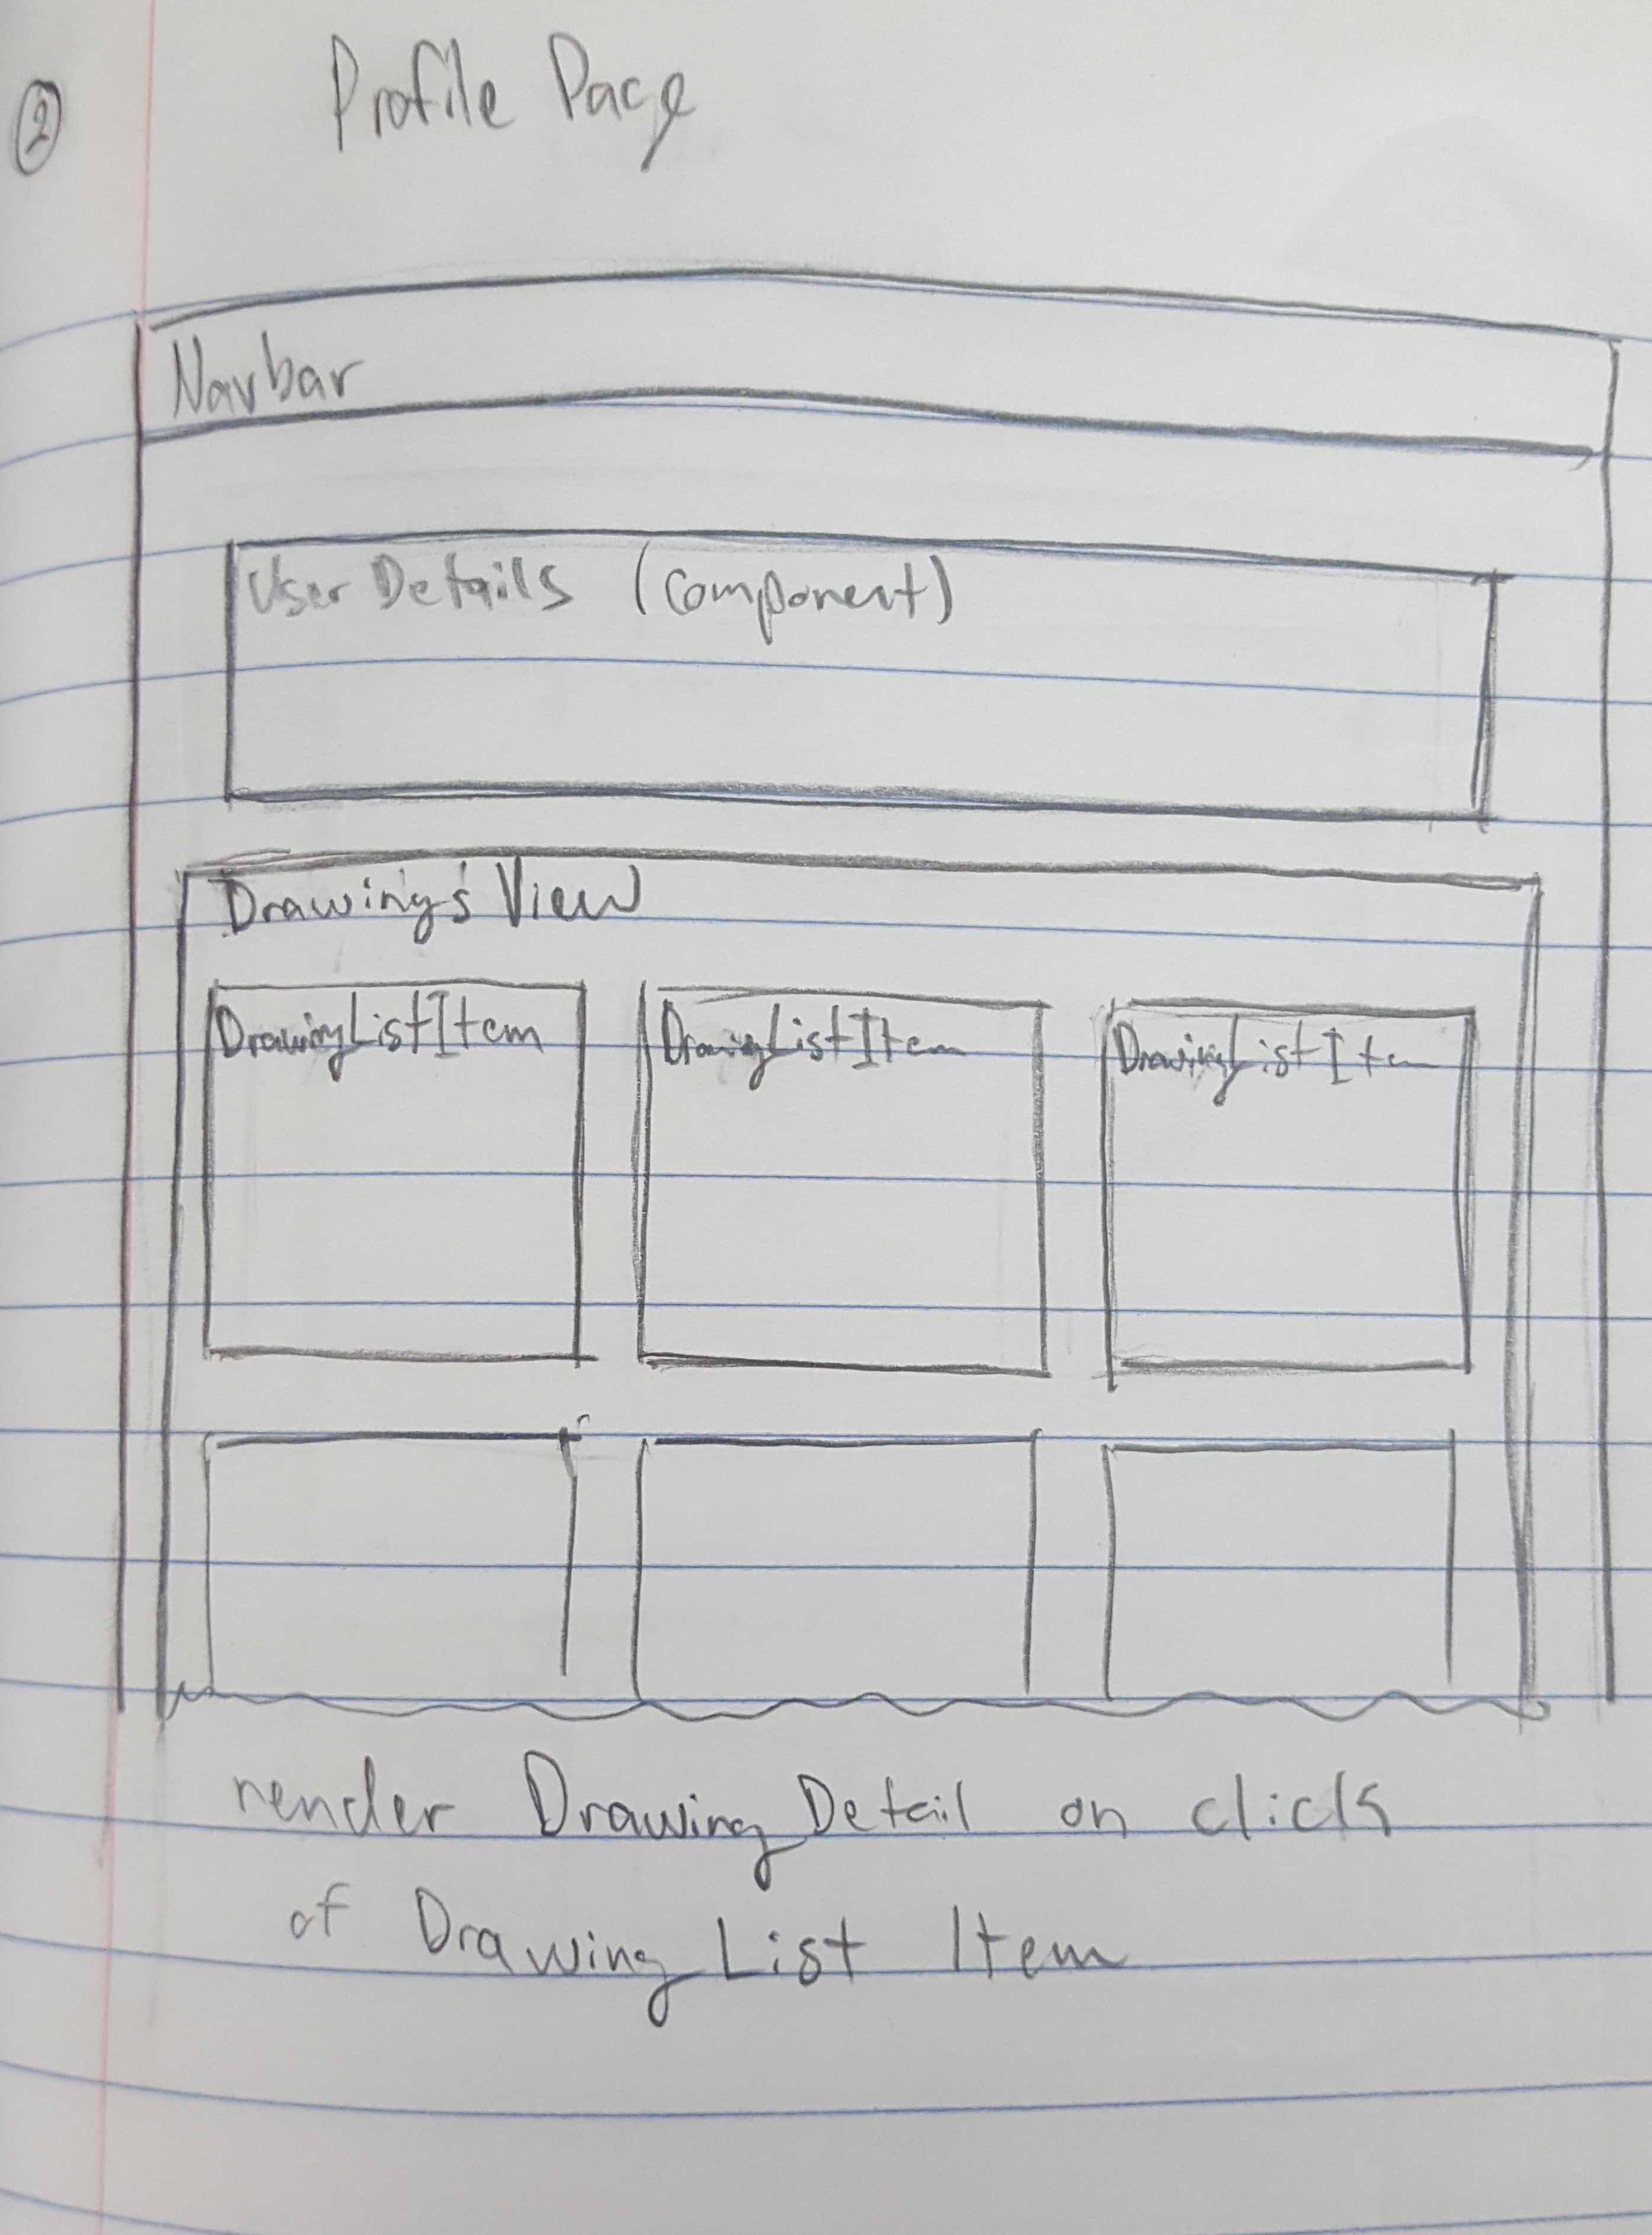 2
Profile Page
Navbar
User Details (component)
Drawing's View
DrawingListItem DrawingListItem DrawingListItem
render Drawing Detail on click
of Drawing List Item